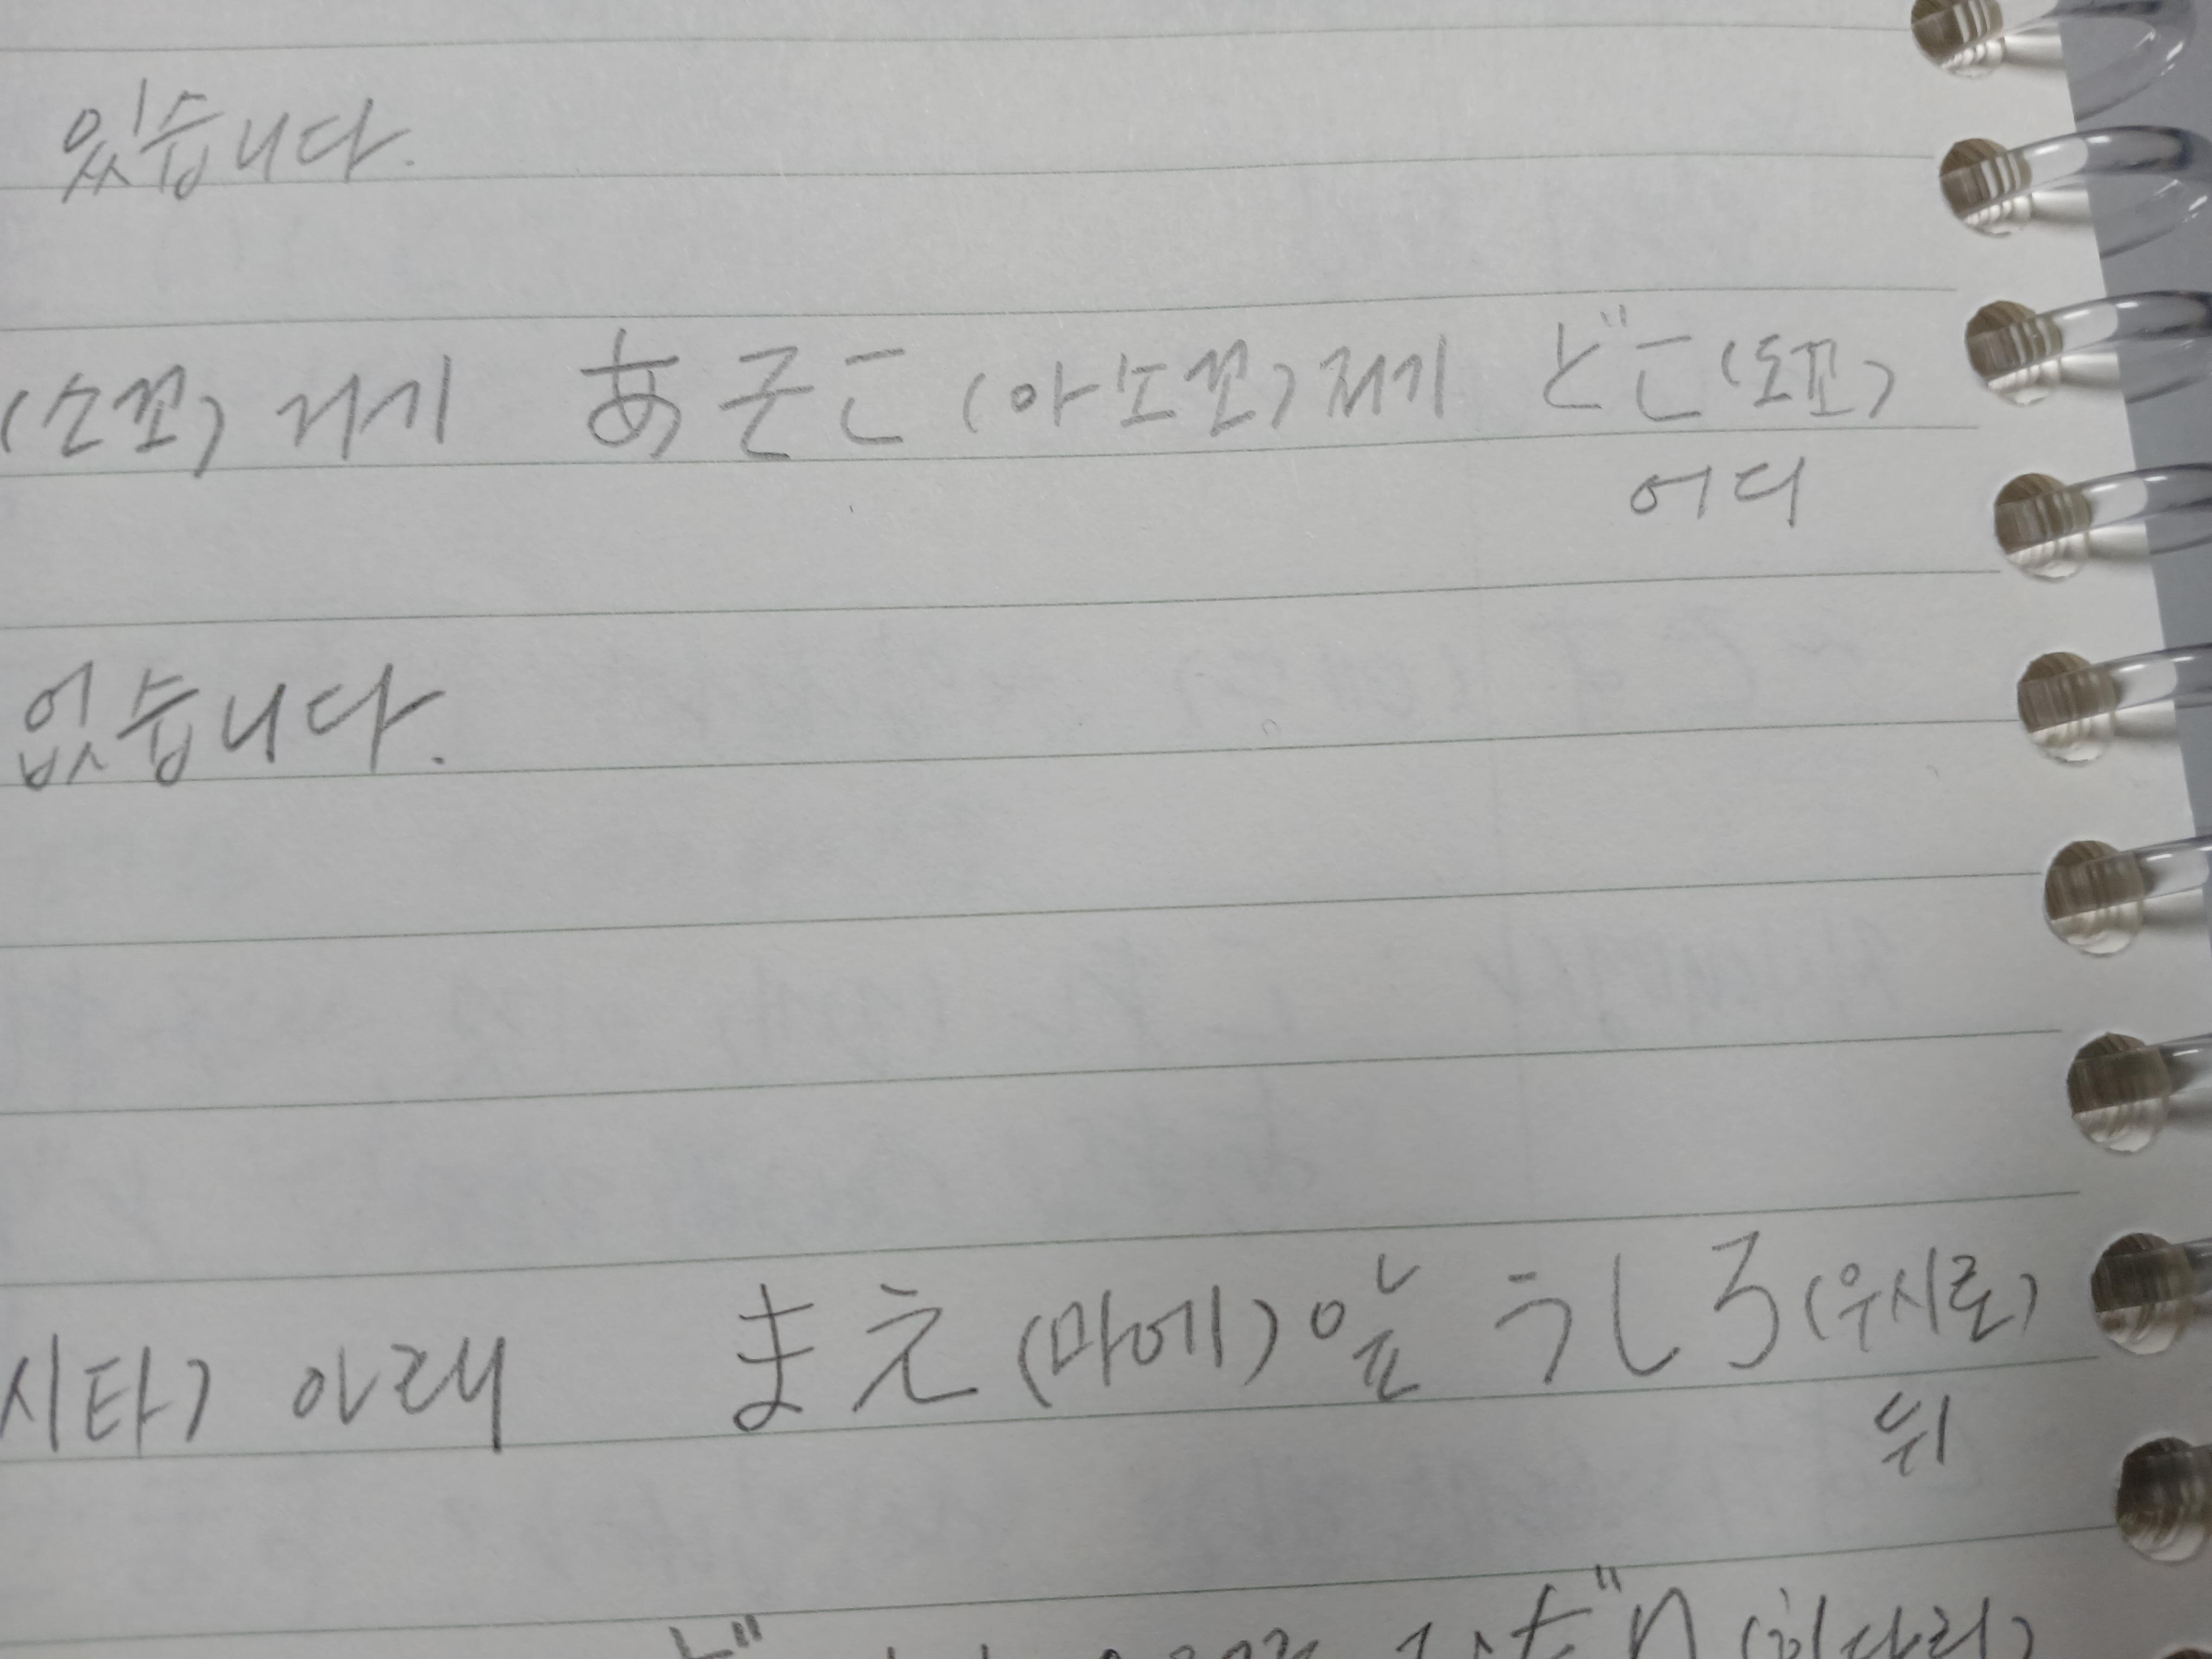 있습니다.
(소꼬) 거기 あそこ (아소꼬) 저기 どこ (도꼬)
어디
없습니다.
시타) 아래 まえ (마에) 앞 うしろ (우시로)
뒤
(히다리)